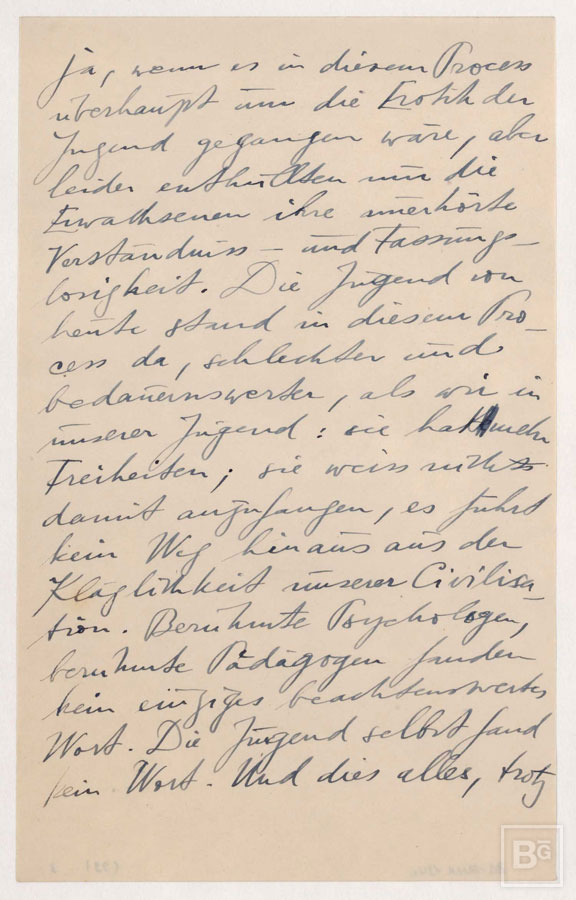 ja, wenn es in diesem Process
überhaupt um die Erotik der
Jugend gegangen wäre, aber
leider enthüllten nur die
Erwachsenen ihre unerhörte
Verständniss- und Fassungs-
losigkeit. Die Jugend von
heute stand in diesem Pro-
cess da, schlechter und
bedauernswerter, als wir in
unserer Jugend: sie hat mehr
Freiheiten; sie weiss nichts
damit anzufangen, es führt
kein Weg hinaus aus der
Kläglichkeit unserer Civilisa-
tion. Berühmte Psychologen,
berühmte Pädagogen fanden
kein einziges beachtenswertes
Wort. Die Jugend selbst fand
kein Wort. Und dies alles, trotz
BG